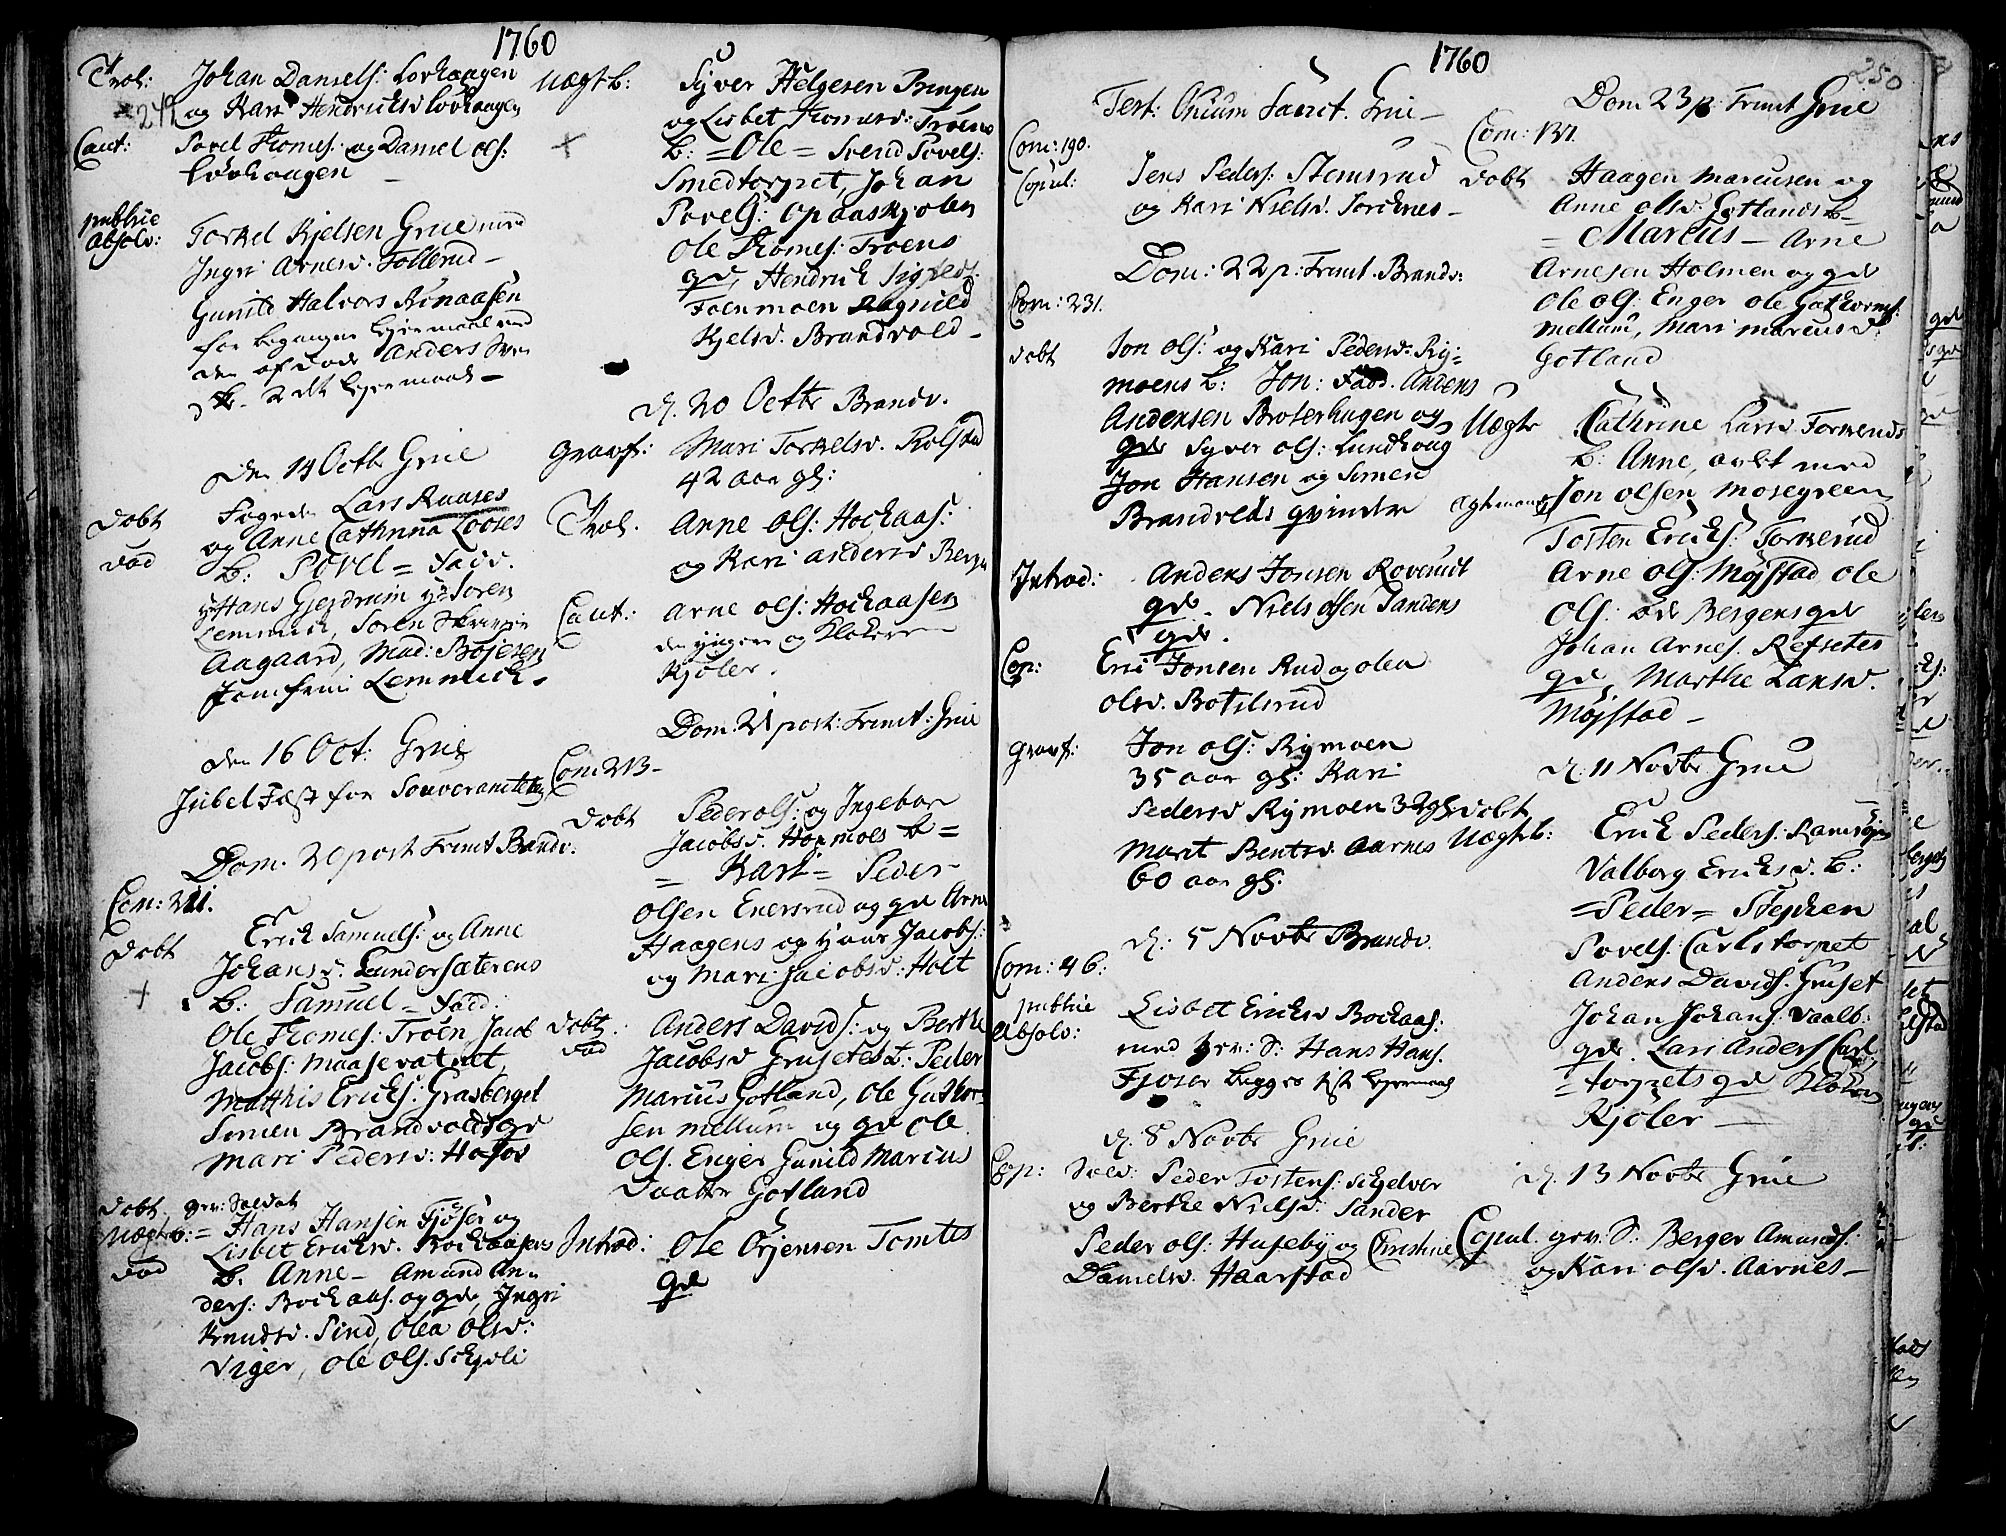 1760
Trol: Johan Danielς: Lovhaagen
249 og Kari Hendricksd Lovhaagen
Caut: Povel Thomeς: og Daniel Ols:
Lövhaagen
publice
absolv: Torkel Kjelsen Grue med
Ingri Arnesd. Tollerud
Gunild Halvors Rönaasen
for begangne Lejermaal med
den af döde Anders Sven
2 det Lejermaal
den 14 Octb Grue
döbt Fogden Lars Ruuses
död og Anne Cathrina Looses
b: Povel = Fadd.
Hr Hans Gjerdrum Hr Soren
Lemmich, Soren Skriver
Aagaard, Mad: Böjesen
Jomfrue Lemmich.
den 16 Oct: Grue
Jubel Fæst for Souverainiteten
Dom. 20 post Trinit Brandv.
Com: 211.
döbt Erich Samuels: og Anne
Johansd. Lundersæterens
+ b: Samuel = Fadd:
Ole Thomes: Troen, Jacob
Jacobs: Maasevatnet
Matthis Ericks: Grasberget
Simen Brandvolds qv
Mari Pedersd: Hofos
döbt gev: Soldat
Uægte b: = Hans Hansen Fjöser og
död Lisbet Ericksd. Bockaasens
b. Anne = Amund An-
ders: Bockaas. og qv, Ingri
Knudsd. Sind, Olea Olsd:
Viger, Ole Ols. Schyli
Uægt b: Syver Helgesen Bringen
og Lisbet Thomesd: Troens
+ b: = Ole = Svend Povels:
Smedtorpet, Johan
Povels: Opaaskjolen
Ole Thomes: Troens
qv, Hendrich Sigfreds:
Foenmoen Ragnild
Kjelsd. Brandvold
d. 20 Octb Brandv.
gravf: Mari Torkelsd. Rolstad
42 aar gl:
Trol. Anne Ols: Hockaas:
og Kari Andersd Berge
Caut: Arne Ols: Hockaasen
den yngere og Klokeren
Kjöler.
Dom. 21 post: Trinit: Grue
Com 213
döbt Peder Ols: og Ingebor
Jacobsd. Hormoes b =
= Kari = Peder
Olsen Enersrud og qv Arne
Haagens og Hans Jacobs:
og Mari Jacobsd: Holt
döbt Anders Davids: og Berthe
död Jacobsd Grusetes b: Peder
Marius Gotland, Ole Guttor-
sen Mellum og qv Ole
Ols. Enger Gunild Marcus
Daatter Gotland
Introd: Ole Örjensen Tomtes
qv
1760
250
Fest: Omium Sanct. Grue
Com: 190.
Copul: Jens Peders: Stemsrud
og Kari Nielsd. Torchnes
Dom: 22 p: Trinit. Brandv:
Com: 231.
döbt Jon Ols: og Kari Pedersd: Ry-
moens b: Jon: Fadd. Anders
Andersen Broterhugen og
qv Syver Ols: Lundhoug
Jon Hansen og Simen
Brandvolds qvinder
Introd: Anders Jonsen Roverud
qv. Niels Olsen Sanders
qv.
Cop: Eric Jonsen Rud og Olea
Olsd. Botilsrud
gravf: Jon Ols: Rymoen
35 aar gl: Kari
Pedersd Rymoen 32 gl
Marit Bentsd. Aarnes
60 aar gl.
d: 5 Novb Brandv.
Com: 46:
publice Lisbet Ericksd Bockaas:
Absolv: med gev: S: Hans Hans.
Fjöser begges 1ste Lejermaal
d. 8 Novb Grue
Cop: Sold: Peder Tostens: Schjelver
og Berthe Nielsd: Sander
Peder Ols: Huseby og Christine
Danielsd. Haarstad
Dom 23 p: Trinit Grue
Com: 137.
döbt Haagen Marcusen og
Anne Olsd. Gotlands b
= Marcus = Arne
Arnesen Holmen og qv
Ole Ols: Enger Ole Gothorms:
Mellum, Mari Marcusd.
Gotland
Uægte Cathrine Larsd Torkerds
b: Anne, avlet med
Jon Olsen Mosegreen
Tosten Ericks: Torkerud
Arne Ols: Möjstad Ole
Ols: öde Bergens qv
Johan Arnes. Refseter
qv, Marthe Larsd.
Möjstad
d. 11 Novb Grue
döbt
Uægte b: Erich Peders:
Valborg Ericksd. b:
= Peder = Stephen
Povels: Carlstorpet
Anders Davids. Gruset
Johan Johans: Vaalb:
qv. Kari Anders Carls
= torpets qv
Kjöler
d. 13 Novb Grue
Copul. gev: S: Berger Amunds:
og Kari Olsd. Aarnes